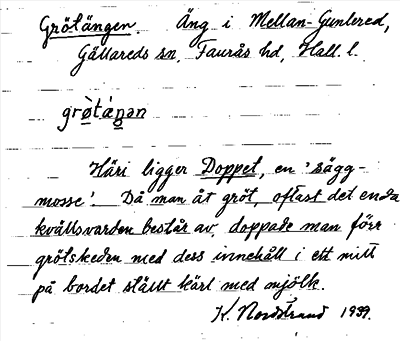 Grötängen. Äng i Mellan-Gunlered,
Gällareds sn, Faurås hd, Hall. l.
grö̀tá̀ŋən
Häri ligger Doppet, en 'sägg-
mosse'. Då man åt gröt, oftast det enda
kvällsvarden består av, doppade man förr
grötskeden med dess innehåll i ett mitt
på bordet ställt kärl med mjölk.
K. Nordstrand 1939.